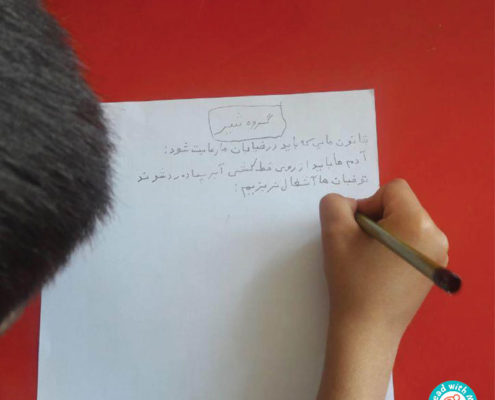 گروه شیر
قانون هایی که باید در خیابان ها رعایت شود:
آدم ها باید از روی خط کشی آبر پیاده رد شوند
تو خیابان ها آشغال نریزیم:
ead with M